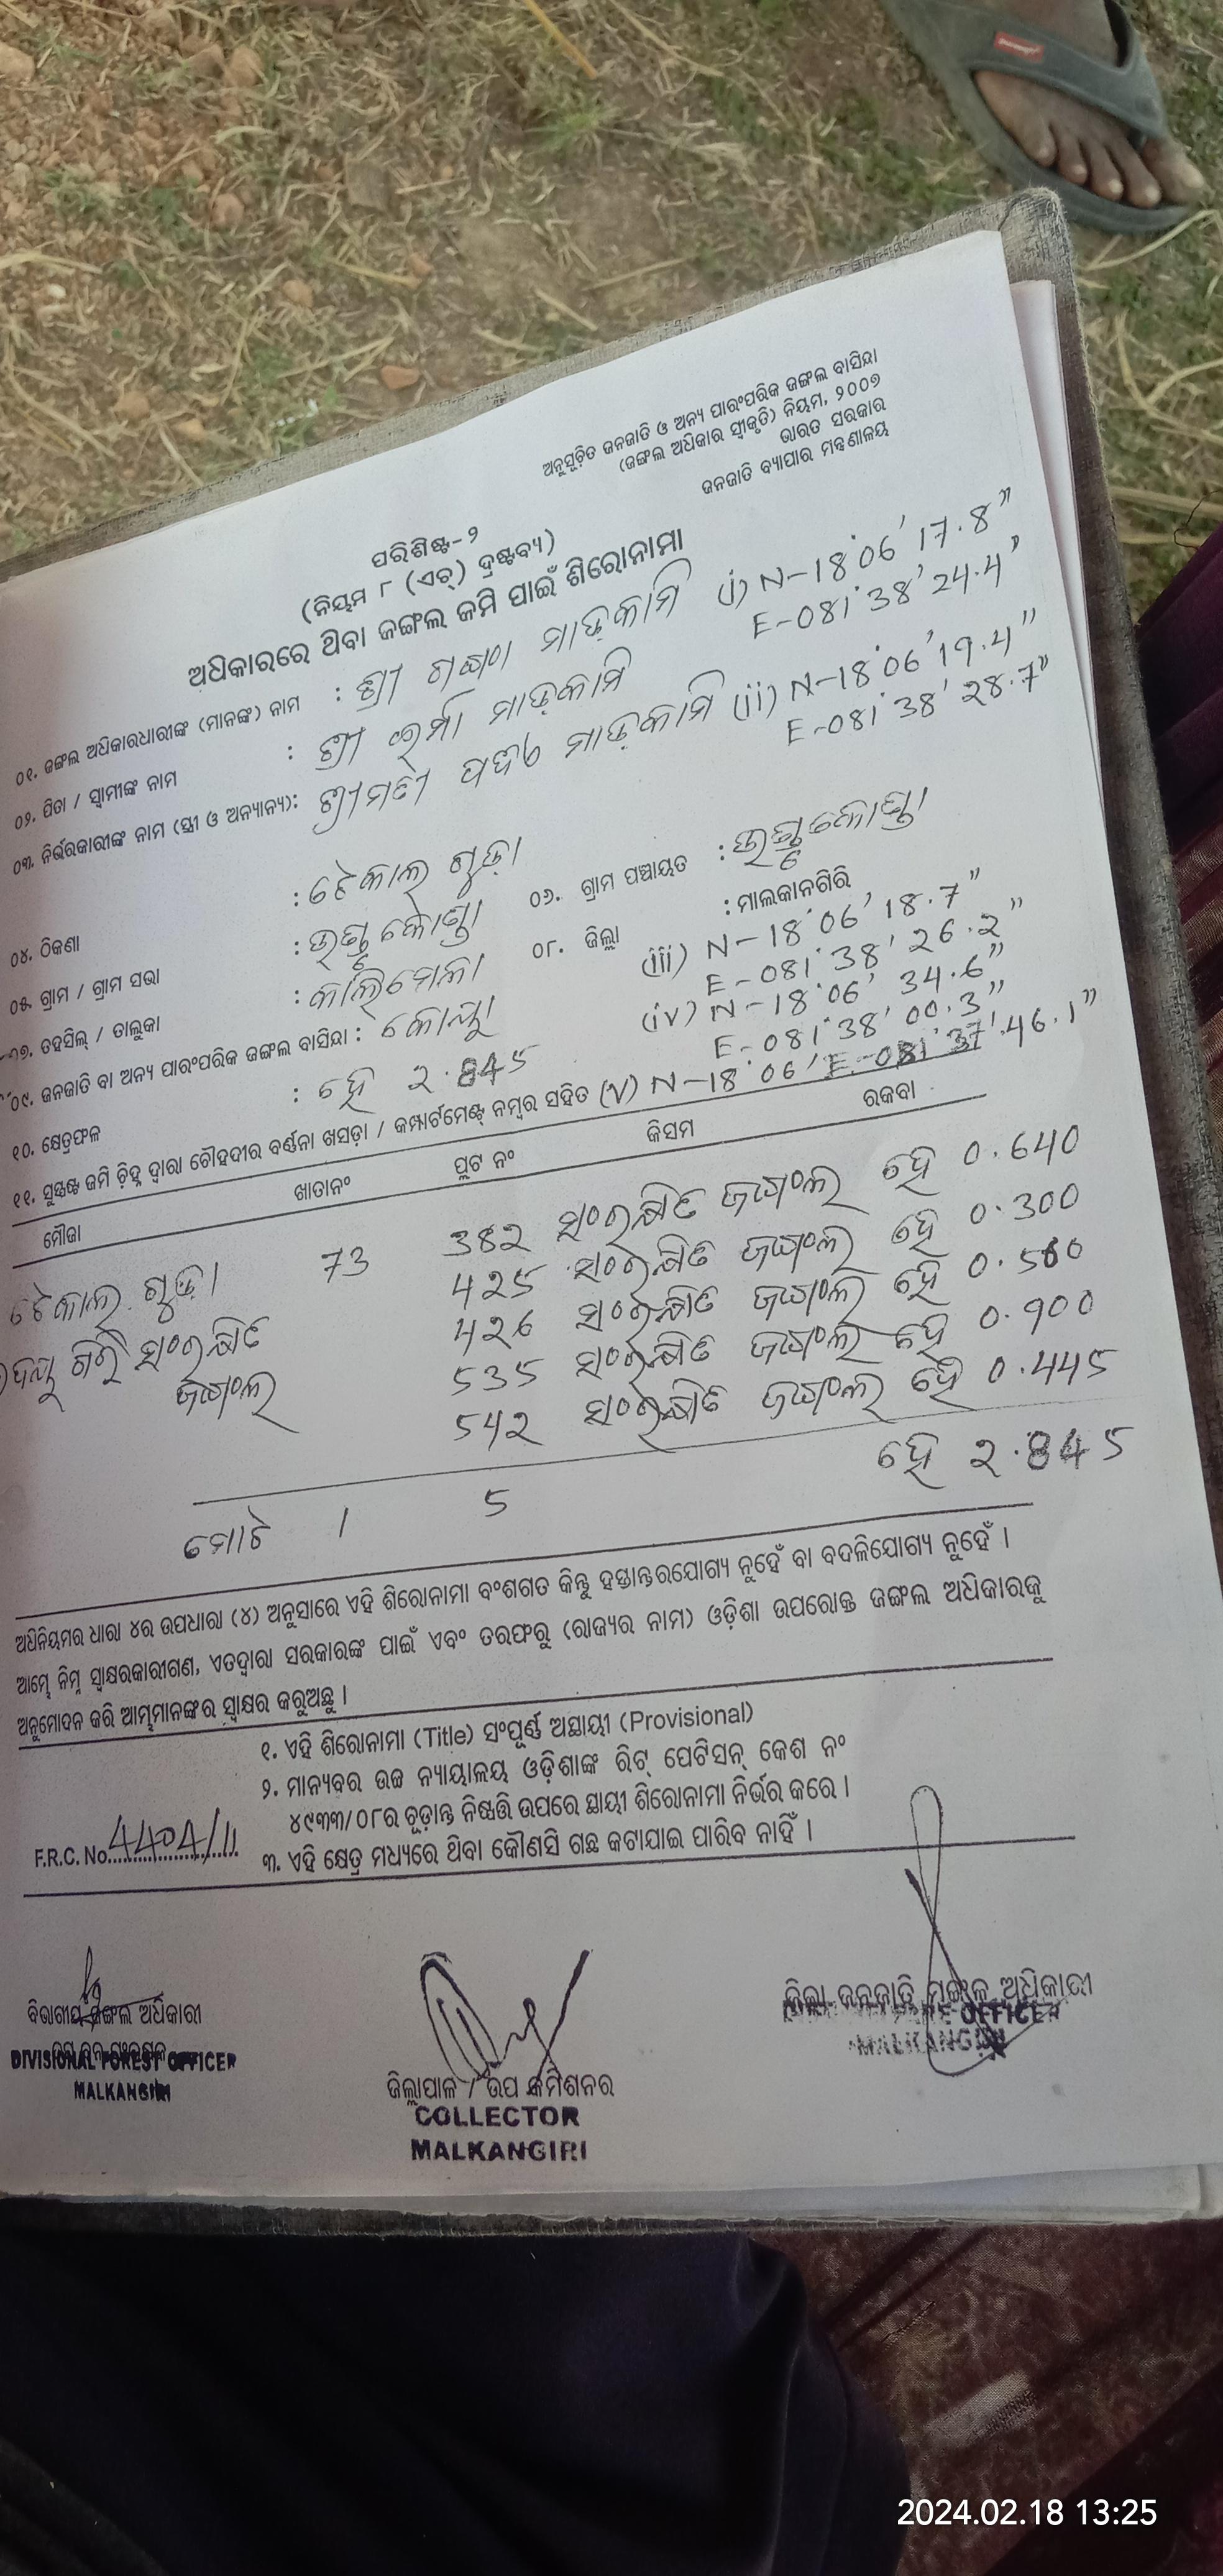 ଅନୁସୂଚିତ ଜନଜାତି ଓ ଅନ୍ୟ ପାରଂପରିକ ଜଙ୍ଗଲ ବାସିନ୍ଦା
(ଜଙ୍ଗଲ ଅଧିକାର ସ୍ୱୀକୃତି) ନିୟମ, ୨୦୦୭
ଭାରତ ସରକାର
ଜନଜାତି ବ୍ୟାପାର ମନ୍ତ୍ରଣାଳୟ
ପରିଶିଷ୍ଟ-୨
(ନିୟମ ୮ (ଏଚ୍) ଦ୍ରଷ୍ଟବ୍ୟ)
ଅଧିକାରରେ ଥିବା ଜଙ୍ଗଲ ଜମି ପାଇଁ ଶିରୋନାମା
୦୧. ଜଙ୍ଗଲ ଅଧିକାରଧାରୀଙ୍କ (ମାନଙ୍କ) ନାମ : ଶ୍ରୀ ମାଡ଼କାମି (i) N-18°06'17.8"
E-081°38'24.4"
୦୨. ପିତା / ସ୍ୱାମୀଙ୍କ ନାମ : ଶ୍ରୀ ମାଡ଼କାମି
୦୩. ନିର୍ଭରକାରୀଙ୍କ ନାମ (ସ୍ତ୍ରୀ ଓ ଅନ୍ୟାନ୍ୟ): ଶ୍ରୀମତୀ ମାଡ଼କାମି (ii) N-18°06'19.4"
E-081°38'28.7"
୦୪. ଠିକଣା : ଟେକାଲ୍ ଗୁଡ଼ା
୦୫. ଗ୍ରାମ / ଗ୍ରାମ ସଭା : ୦୬. ଗ୍ରାମ ପଞ୍ଚାୟତ :
୦୭. ତହସିଲ୍ / ତାଲୁକା : କାଲିମେଳା ୦୮. ଜିଲ୍ଲା : ମାଲକାନଗିରି
(iii) N-18°06'18.7"
E-081°38'26.2"
୦୯. ଜନଜାତି ବା ଅନ୍ୟ ପାରଂପରିକ ଜଙ୍ଗଲ ବାସିନ୍ଦା : କୋୟା (iv) N-18°06'34.6"
E-081°38'00.3"
୧୦. କ୍ଷେତ୍ରଫଳ : ହେ ୨.845
୧୧. ସୁସ୍ପଷ୍ଟ ଜମି ଚିହ୍ନ ଦ୍ୱାରା ଚୌହଦୀର ବର୍ଣ୍ଣନା ଖସଡ଼ା / କମ୍ପାର୍ଟମେଣ୍ଟ୍ ନମ୍ବର ସହିତ (V) N-18°06' E-081°37'46.1"
ମୌଜା ଖାତାନଂ ପ୍ଲଟ ନଂ କିସମ ରକବା
ଟେକାଲ୍ ଗୁଡ଼ା 73 38୨ ସଂରକ୍ଷିତ ଜଙ୍ଗଲ ହେ 0.640
4୨5 ସଂରକ୍ଷିତ ଜଙ୍ଗଲ ହେ 0.300
ଗିରି ସଂରକ୍ଷିତ 4୨6 ସଂରକ୍ଷିତ ଜଙ୍ଗଲ ହେ 0.560
ଜଙ୍ଗଲ 535 ସଂରକ୍ଷିତ ଜଙ୍ଗଲ ହେ 0.900
54୨ ସଂରକ୍ଷିତ ଜଙ୍ଗଲ ହେ 0.445
ମୋଟ 1 5 ହେ ୨.845
ଅଧିନିୟମର ଧାରା ୪ର ଉପଧାରା (୪) ଅନୁସାରେ ଏହି ଶିରୋନାମା ବଂଶଗତ କିନ୍ତୁ ହସ୍ତାନ୍ତରଯୋଗ୍ୟ ନୁହେଁ ବା ବଦଳିଯୋଗ୍ୟ ନୁହେଁ ।
ଆମ୍ଭେ ନିମ୍ନ ସ୍ୱାକ୍ଷରକାରୀଗଣ, ଏତଦ୍ୱାରା ସରକାରଙ୍କ ପାଇଁ ଏବଂ ତରଫରୁ (ରାଜ୍ୟର ନାମ) ଓଡ଼ିଶା ଉପରୋକ୍ତ ଜଙ୍ଗଲ ଅଧିକାରକୁ
ଅନୁମୋଦନ କରି ଆମ୍ଭମାନଙ୍କର ସ୍ୱାକ୍ଷର କରୁଅଛୁ ।
୧. ଏହି ଶିରୋନାମା (Title) ସଂପୂର୍ଣ୍ଣ ଅସ୍ଥାୟୀ (Provisional)
୨. ମାନ୍ୟବର ଉଚ୍ଚ ନ୍ୟାୟାଳୟ ଓଡ଼ିଶାଙ୍କ ରିଟ୍ ପେଟିସନ୍ କେଶ ନଂ
୪୯୩୩/୦୮ର ଚୂଡ଼ାନ୍ତ ନିଷ୍ପତ୍ତି ଉପରେ ସ୍ଥାୟୀ ଶିରୋନାମା ନିର୍ଭର କରେ ।
F.R.C. No. 4404/11 ୩. ଏହି କ୍ଷେତ୍ର ମଧ୍ୟରେ ଥିବା କୌଣସି ଗଛ କଟାଯାଇ ପାରିବ ନାହିଁ ।
ବିଭାଗୀୟ ଜଙ୍ଗଲ ଅଧିକାରୀ
DIVISIONAL FOREST OFFICER
MALKANGIRI
ଜିଲ୍ଲାପାଳ / ଉପ କମିଶନର
COLLECTOR
MALKANGIRI
ଜିଲ୍ଲା ଜନଜାତି ମଙ୍ଗଳ ଅଧିକାରୀ
OFFICER
MALKANGIRI
2024.02.18 13:25